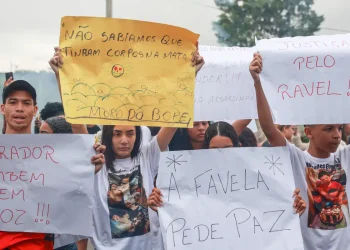 NÃO SABIAMOS QUE
TINHAM CORPOS NA MATA
MEDO DO BOPE
PELO
RAVEL!
RADOR
BEM
EM
OZ!!!
A FAVELA
PEDE PAZ